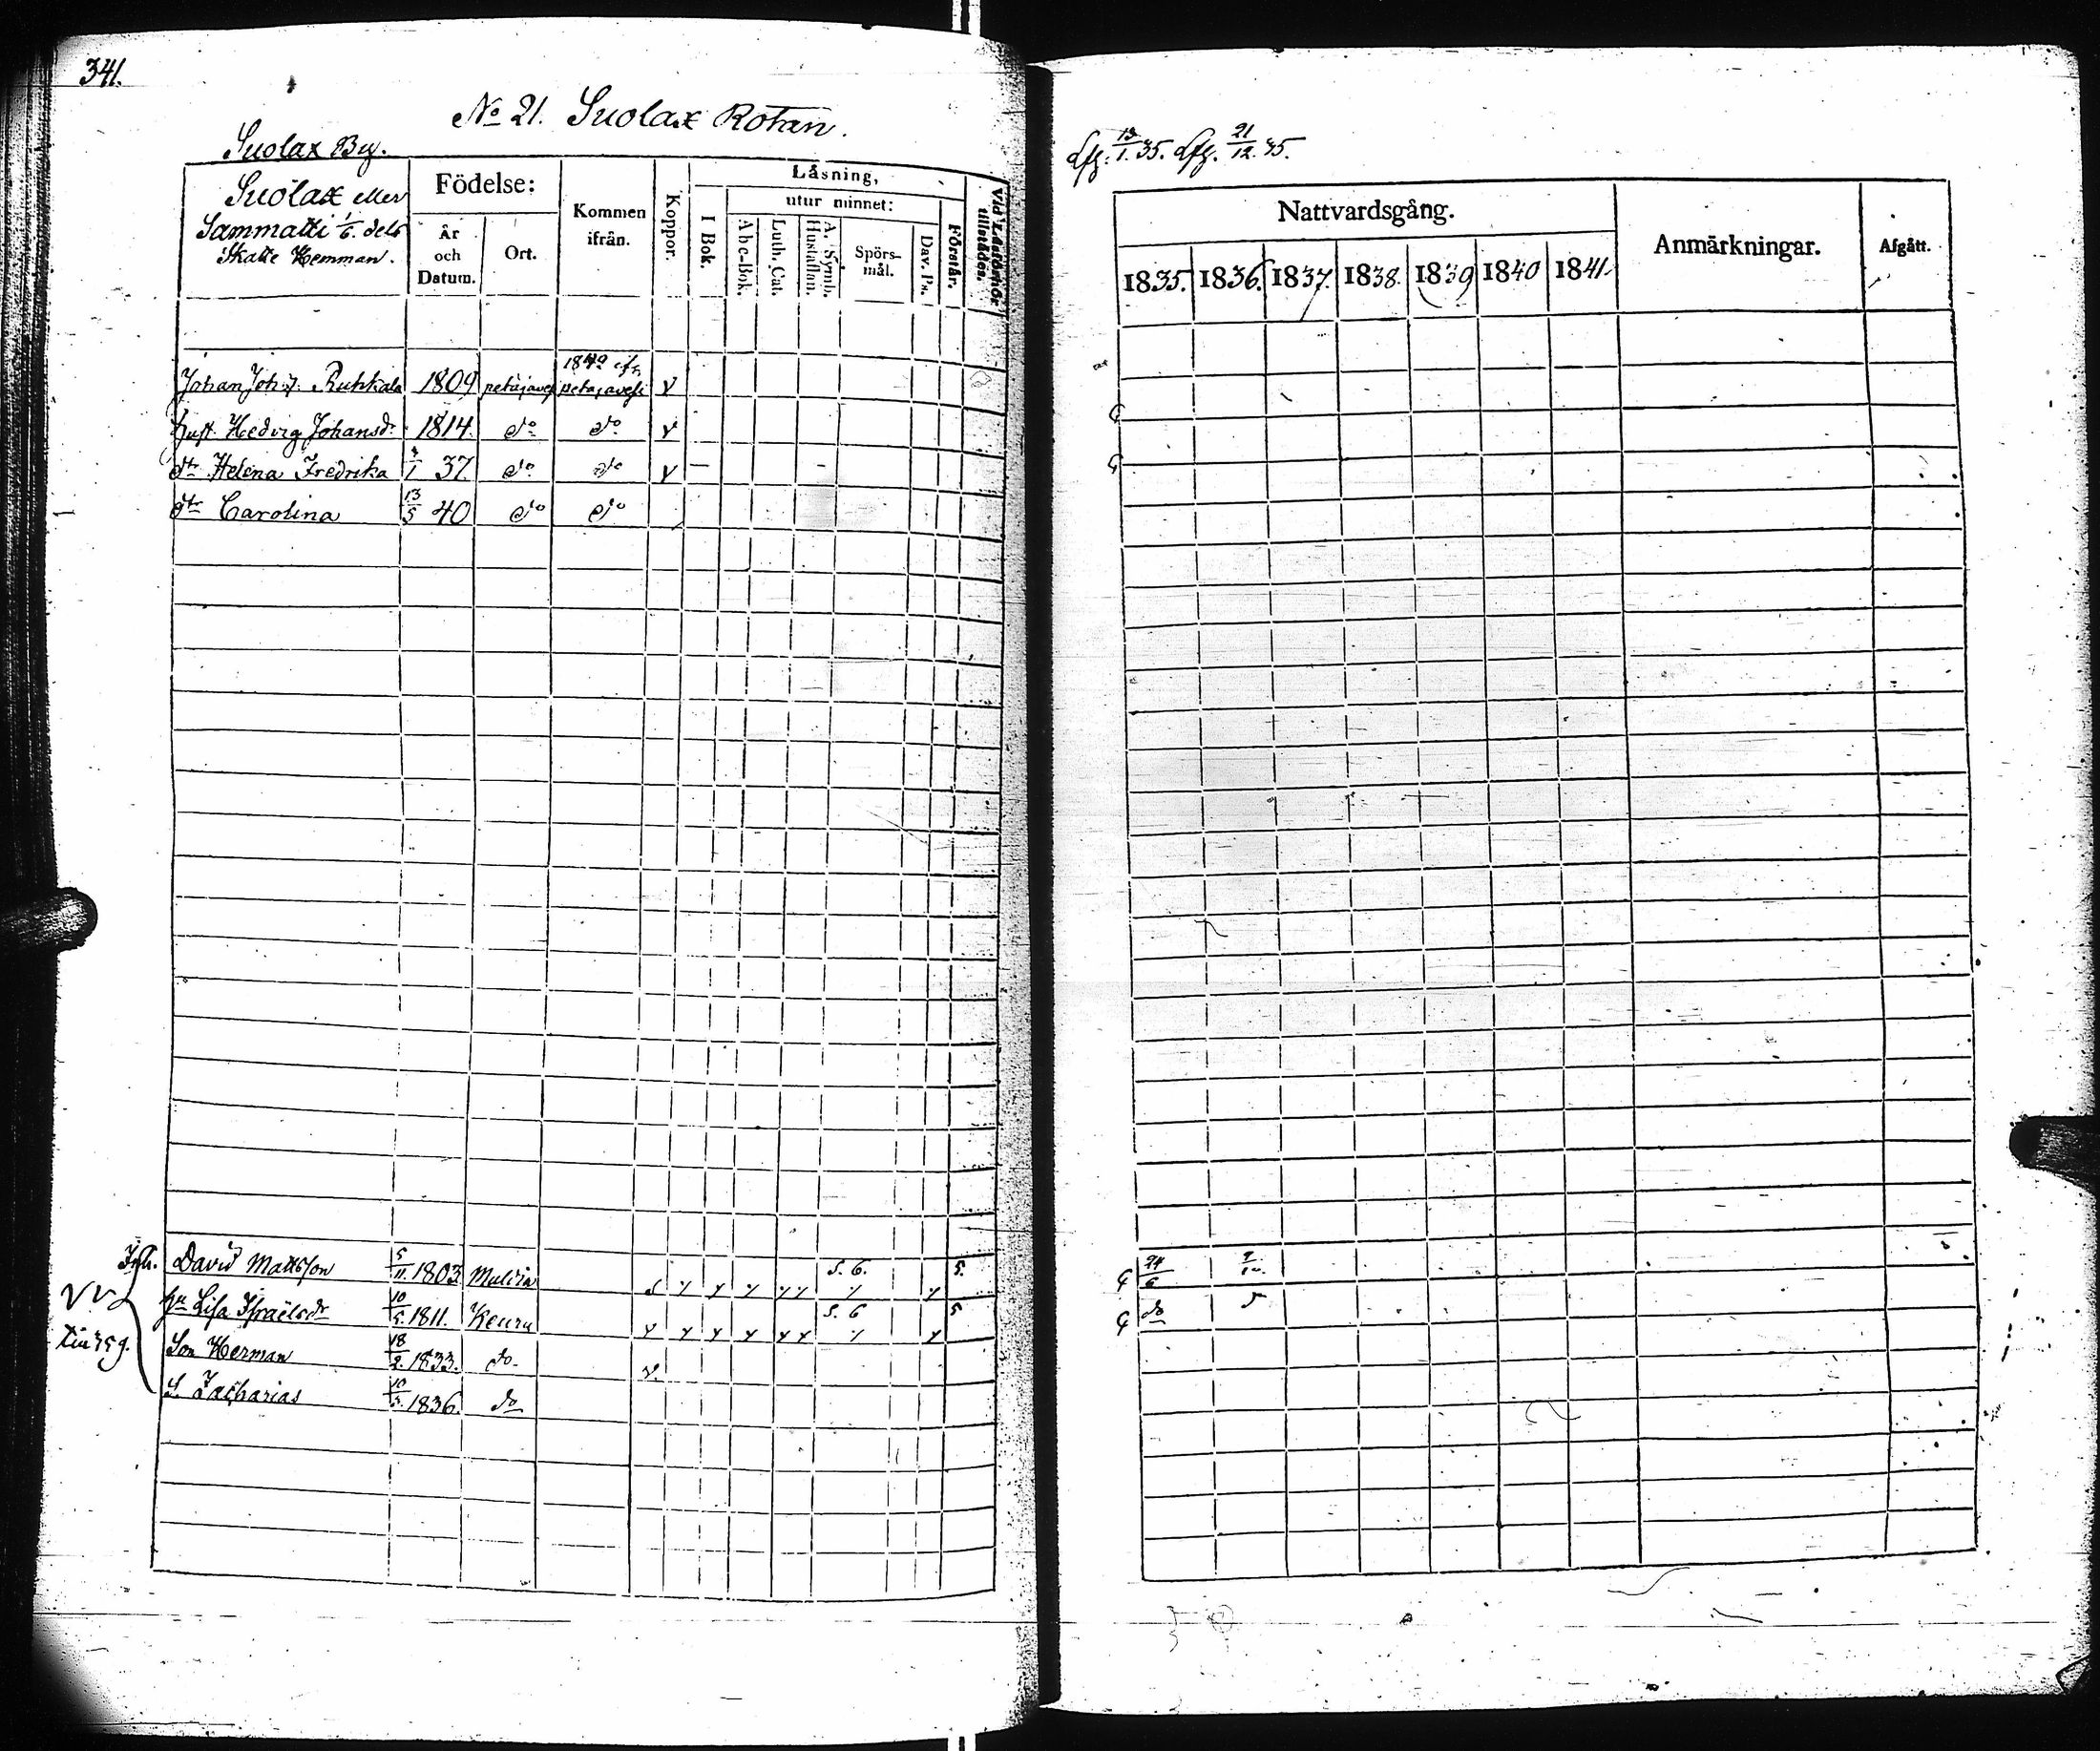 341.
No 21. Suolax Rotan.
Suolax By.
Suolax eller
Sammatti 1/6. dels
Skatte Hemman.
Födelse:
År
och
Datum.
Ort.
Kommen
ifrån.
Koppor.
Låsning,
utur minnet:
I Bok.
Abc-Bok.
Luth. Cat.
A. Symb.
Hustaflan.
Spörs-
mål.
Dav. Ps.
Förstår.
Vid Läseförhör
tillstädes.
Johan Joh:s: Ruhkala 1809 petäjäves petajavesi v
hust. Hedvig Johansdr 1814. do do v
dtr Helena Fredrika 1 37. do do v
dtr Carolina 13/5 40 do do
Inh. David Mattsson 5/11 1803 Multia 5. 6. 5.
hu Lisa Israelsdr 10/5 1811. Keuru 5. 6 5
Son Herman 18/2. 1833. do
S. Zacharias 10/3. 1836. do
Lfg. 13/1. 35. Lfg. 21/12. 35.
Nattvardsgång.
Anmärkningar.
Afgått.
1835. 1836. 1837. 1838. 1839 1840 1841
G
G
G 24/6
G do